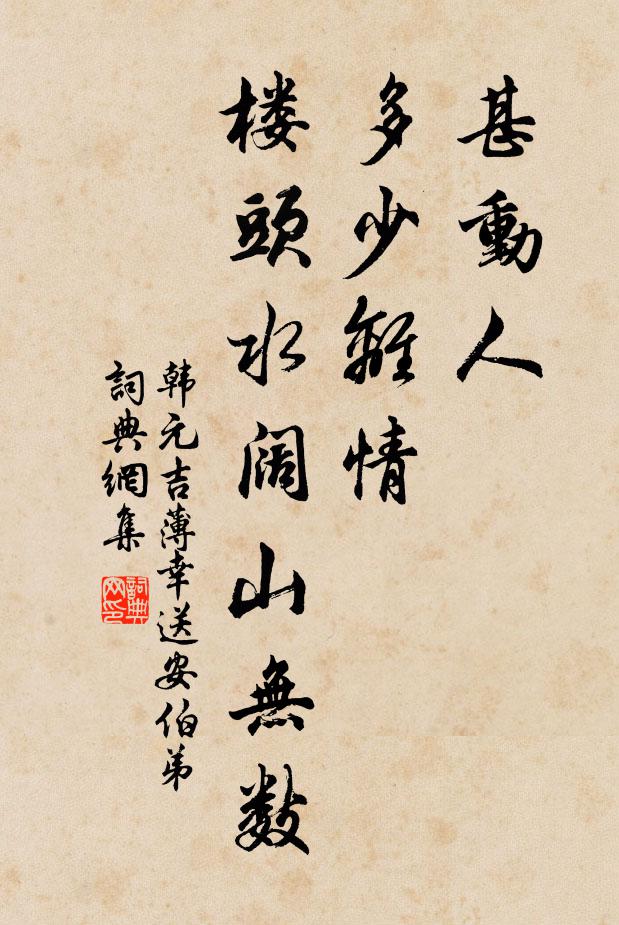 甚動人
多少離情
楼頭水阔山無数
韩元吉薄幸送安伯弟
詞典網集
詞典网印